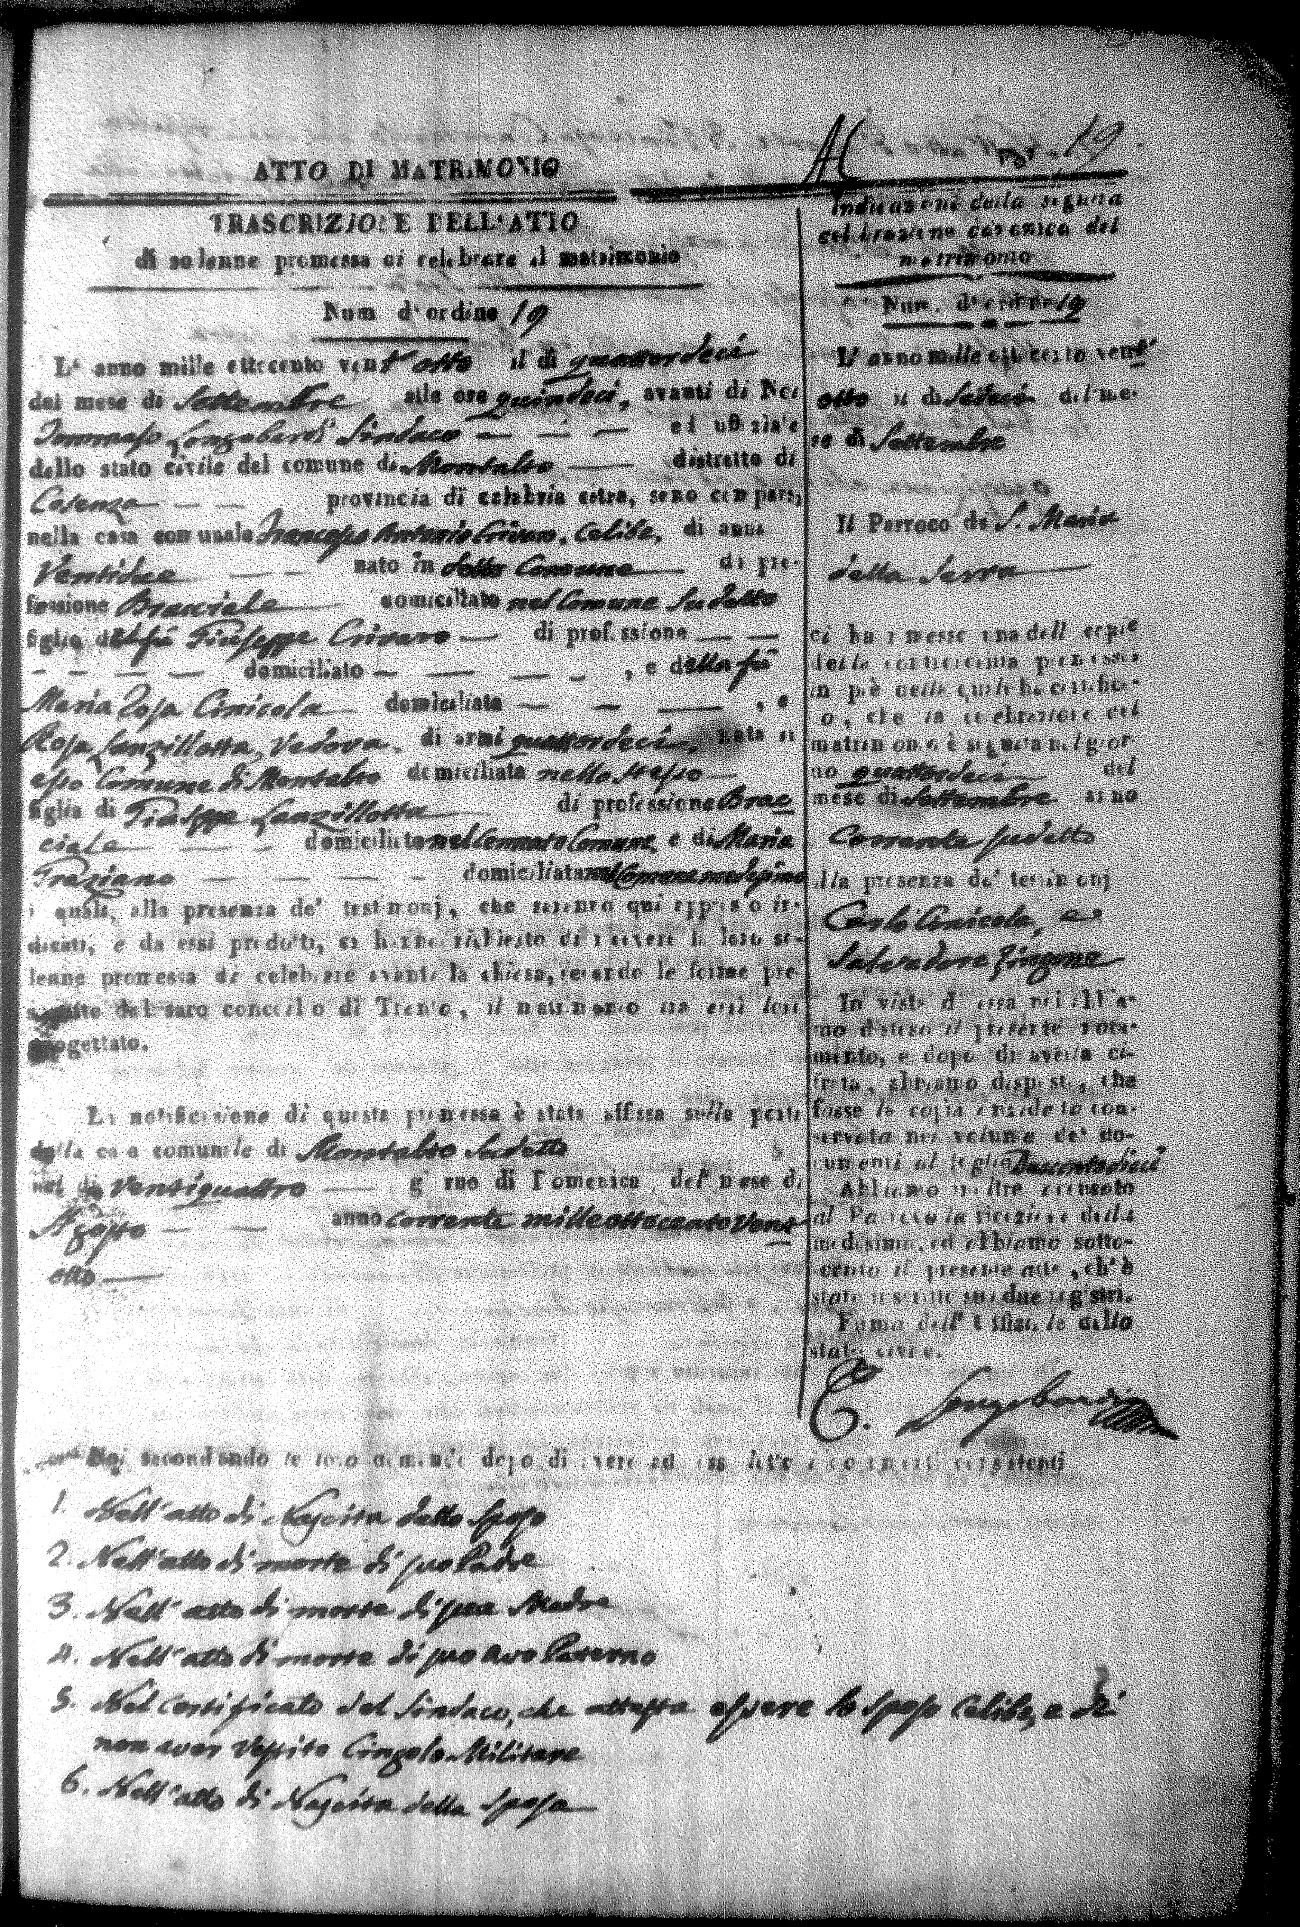 19
ATTO DI MATRIMONIO
TRASCRIZIONE DELL'ATTO
di solenne promessa di celebrare il matrimonio
Num. d'ordine 19
L'anno mille ottocento vent'otto il dì quattordeci
del mese di Settembre alle ore quindeci, avanti di Noi
Tommaso Longobardi Sindaco ed uffiziale
dello stato civile del comune di Montalto distretto di
Cosenza provincia di calabria citra, sono comparsi
nella casa comunale Francesco Antonio Crivaro, Celibe, di anni
Ventidue nato in detto Comune di pro-
fessione Bracciale domiciliato nel Comune Sudetto
figlio del fù Giuseppe Crivaro di professione
domiciliato , e della fù
Maria Rosa Cinicola domiciliata , e
Rosa Lanzillotta, Vedova, di anni quattordeci, nata in
esso Comune di Montalto domiciliata nello stesso
figlia di Giuseppe Lanzillotta di professione Brac
ciale domiciliato nel Comune e di Maria
Graziano domiciliata nel Comune medesimo
i quali, alla presenza de' testimonj, che saranno qui appresso in-
dicati, e da essi prodotti, ci hanno richiesto di ricevere la loro so-
lenne promessa di celebrare avanti la chiesa, secondo le forme pre-
scritte dal sacro concilio di Trento, il matrimonio tra essi loro
progettato.
La notificazione di questa promessa è stata affissa sulla porta
della casa comunale di Montalto Sudetto
nel dì Ventiquattro giorno di Domenica del mese di
Agosto anno corrente mille ottocento Vent
otto
Noi secondando le loro domande dopo di avere ad essi letto i documenti consistenti
1. Nell'atto di Nascita dello Sposo
2. Nell'atto di morte di suo Padre
3. Nell'atto di morte di sua Madre
4. Nell'atto di morte di suo avo Paterno
5. Nel certificato del Sindaco, che attesta essere lo sposo Celibe, e di
non aver Vestito Cingolo Militare
6. Nell'atto di Nascita della Sposa
Indicazione della seguita
celebrazione canonica del
matrimonio
Num. d'ordine 19
L'anno mille ottocento vent'
otto il dì Sedeci del me-
se di Settembre
Il Parroco di S. Maria
della Serra
ci ha rimesse una delle copie
della antecedente promessa
in piè della quale ha certifica-
to, che la celebrazione del
matrimonio è seguita nel gior-
no quattordeci del
mese di Settembre anno
Corrente sudetto
alla presenza de' testimonj
Carlo Cinicola, e
Salvadore Zingone
In vista di essa noi abbia-
mo disteso il presente notа-
mento, e dopo di averla ci-
frata, abbiamo disposto, che
fosse la copia anzidetta con-
servata nel volume de' do-
cumenti al foglio Duecentodieci
Abbiamo inoltre accusato
al Parroco la ricezione della
medesima, ed abbiamo sotto-
scritto il presente atto, ch'è
stato iscritto sui due registri.
Firma dell'Uffiziale dello
stato civile.
T. Longobardi